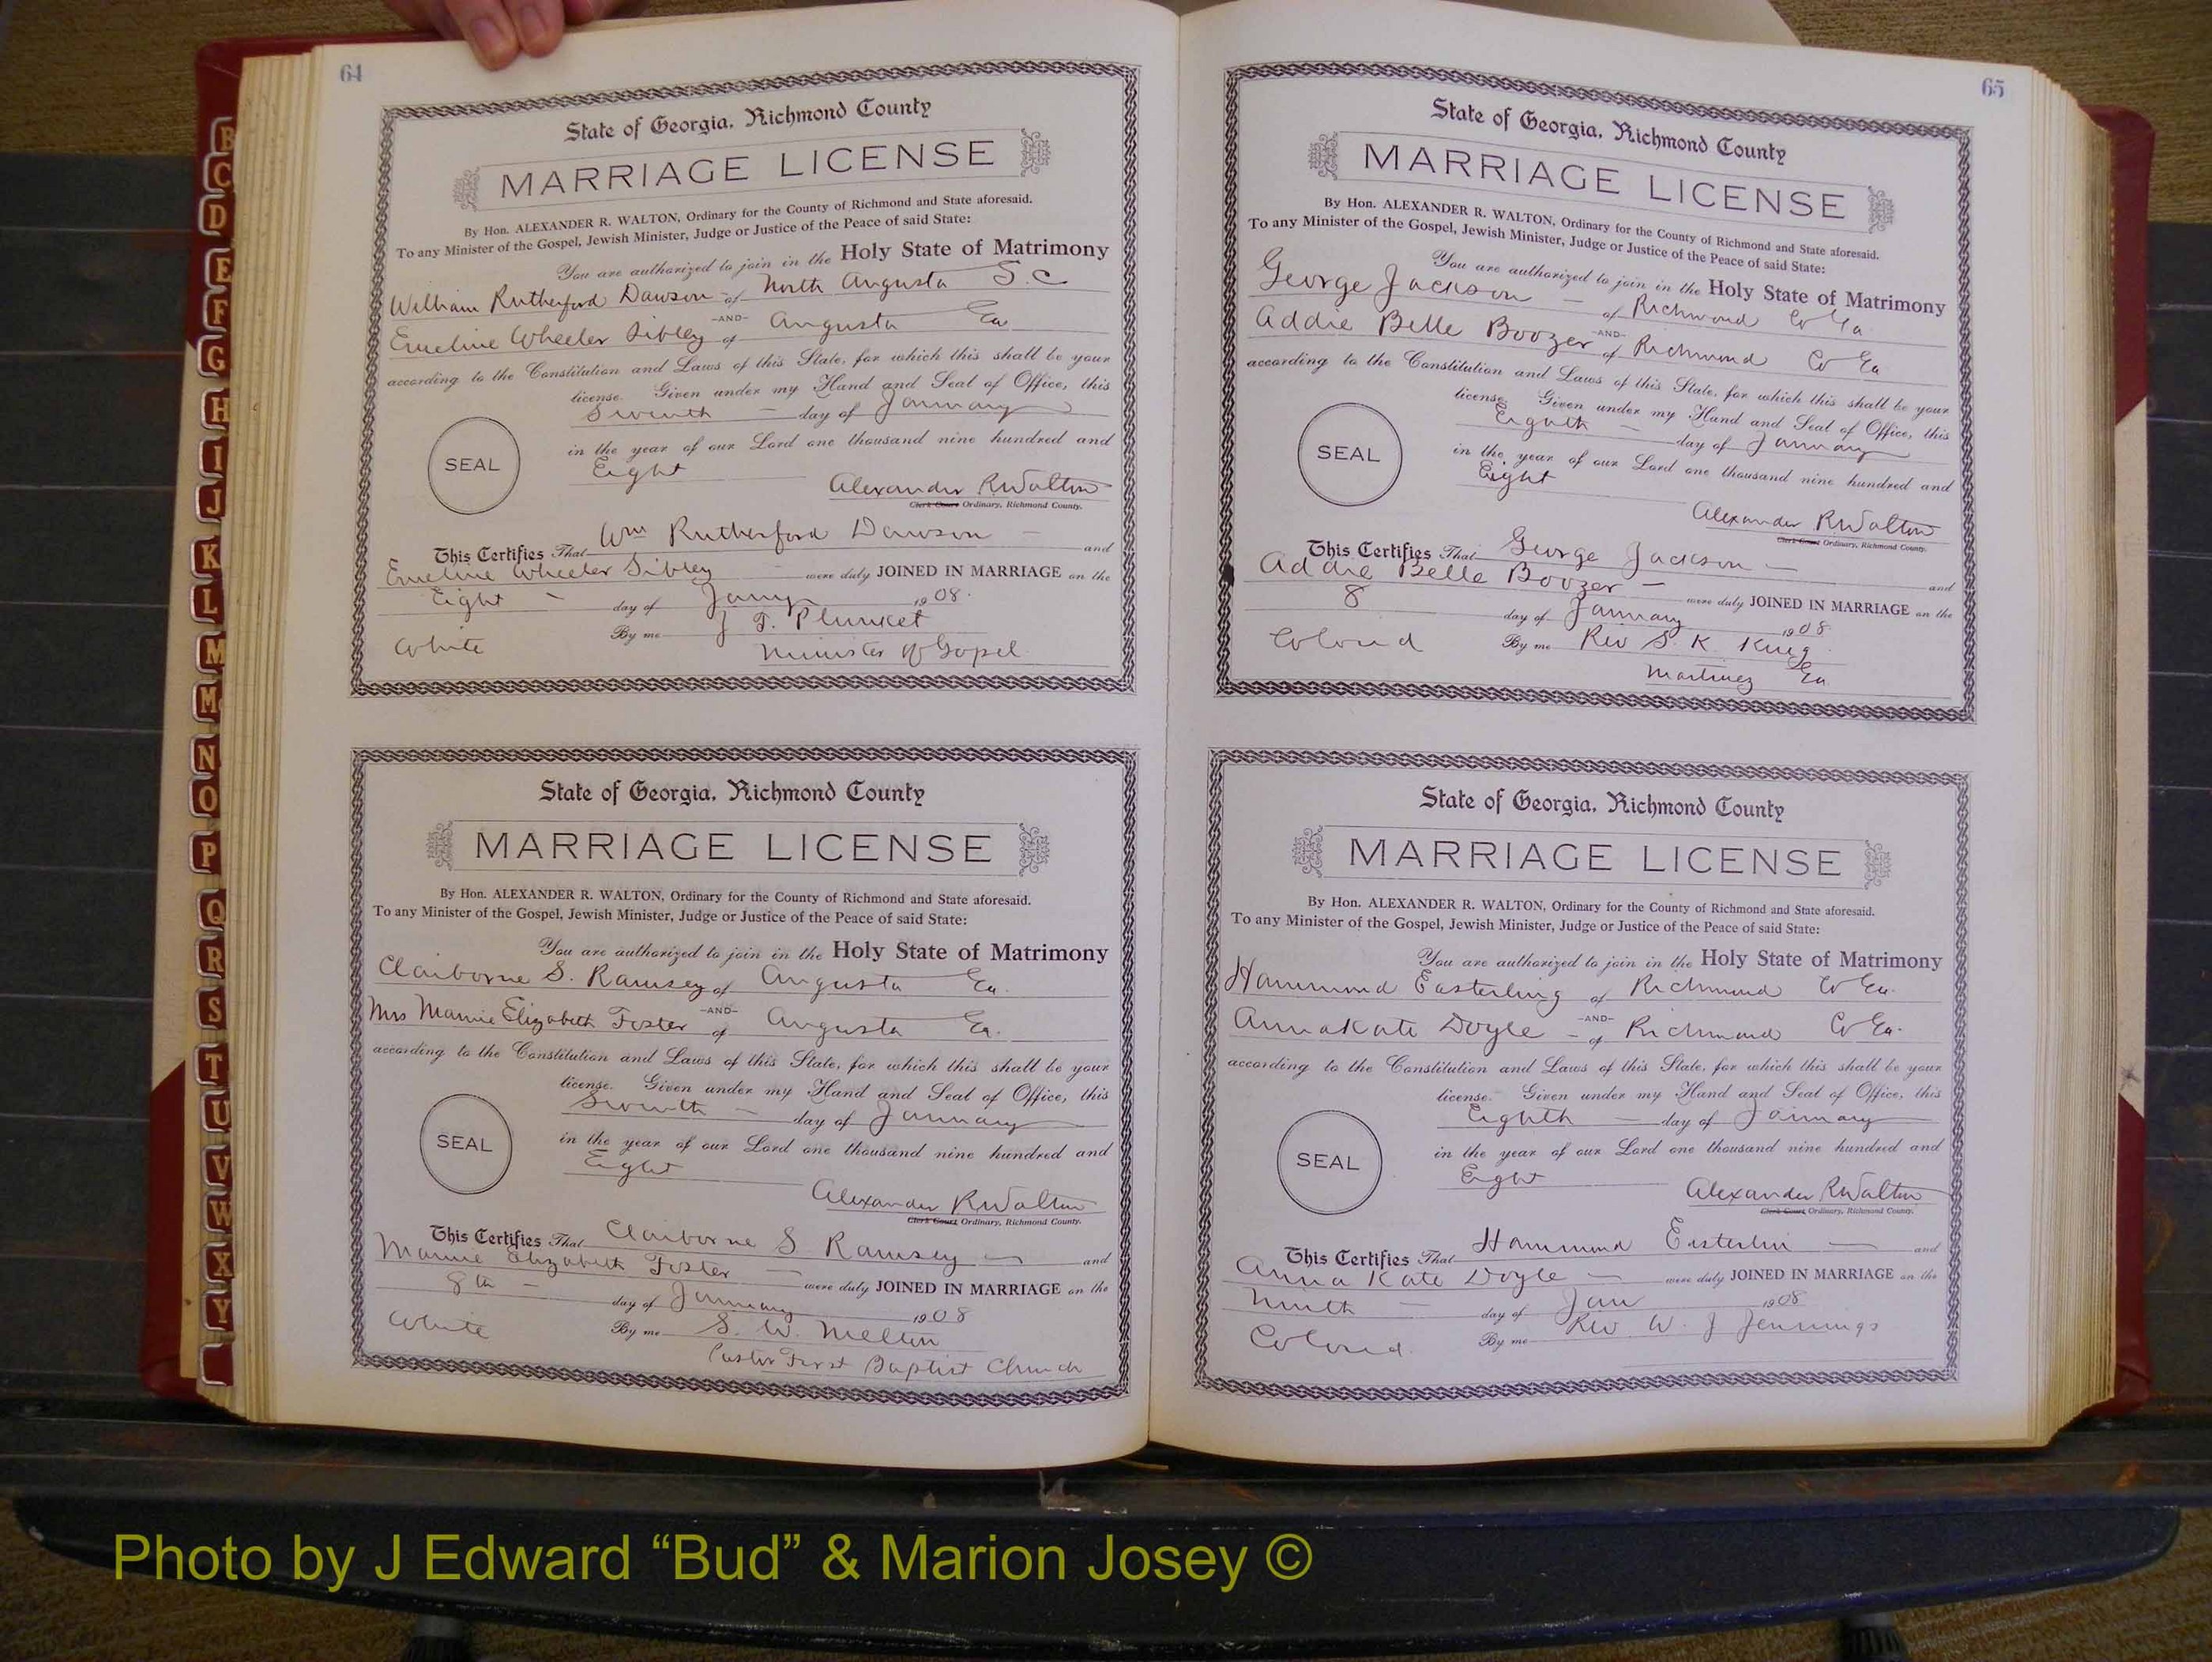 64
State of Georgia, Richmond County
MARRIAGE LICENSE
By Hon. ALEXANDER R. WALTON, Ordinary for the County of Richmond and State aforesaid.
To any Minister of the Gospel, Jewish Minister, Judge or Justice of the Peace of said State:
You are authorized to join in the Holy State of Matrimony
William Rutherford Dawson - of North Augusta S.C
-AND-
Emeline Wheeler Sibley of Augusta Ga
according to the Constitution and Laws of this State, for which this shall be your
license. Given under my Hand and Seal of Office, this
Seventh - day of January
SEAL
in the year of our Lord one thousand nine hundred and
Eight
Alexander R Walton
Clerk Court Ordinary, Richmond County.
This Certifies That Wm Rutherford Dawson - and
Emeline Wheeler Sibley were duly JOINED IN MARRIAGE on the
Eight - day of Jany 1908.
White By me J T. Plunket
Minister of Gospel
State of Georgia, Richmond County
MARRIAGE LICENSE
By Hon. ALEXANDER R. WALTON, Ordinary for the County of Richmond and State aforesaid.
To any Minister of the Gospel, Jewish Minister, Judge or Justice of the Peace of said State:
You are authorized to join in the Holy State of Matrimony
Claiborne S. Ramsey of Augusta Ga.
-AND-
Mrs Mamie Elizabeth Foster of Augusta Ga.
according to the Constitution and Laws of this State, for which this shall be your
license. Given under my Hand and Seal of Office, this
Seventh - day of January
SEAL
in the year of our Lord one thousand nine hundred and
Eight
Alexander R Walton
Clerk Court Ordinary, Richmond County.
This Certifies That Claiborne S Ramsey - and
Mamie Elizabeth Foster - were duly JOINED IN MARRIAGE on the
8th - day of January 1908
White By me S. W. Mellen
Pastor First Baptist Church
65
State of Georgia, Richmond County
MARRIAGE LICENSE
By Hon. ALEXANDER R. WALTON, Ordinary for the County of Richmond and State aforesaid.
To any Minister of the Gospel, Jewish Minister, Judge or Justice of the Peace of said State:
You are authorized to join in the Holy State of Matrimony
George Jackson - of Richmond Co Ga
-AND-
Addie Belle Boozer of Richmond Co Ga
according to the Constitution and Laws of this State, for which this shall be your
license. Given under my Hand and Seal of Office, this
Eighth - day of January
SEAL
in the year of our Lord one thousand nine hundred and
Eight
Alexander R Walton
Clerk Court Ordinary, Richmond County.
This Certifies That George Jackson - and
Addie Belle Boozer - were duly JOINED IN MARRIAGE on the
8 day of January 1908
Colored By me Rev S. K. King
Martinez Ga
State of Georgia, Richmond County
MARRIAGE LICENSE
By Hon. ALEXANDER R. WALTON, Ordinary for the County of Richmond and State aforesaid.
To any Minister of the Gospel, Jewish Minister, Judge or Justice of the Peace of said State:
You are authorized to join in the Holy State of Matrimony
Hammond Easterling of Richmond Co Ga.
-AND-
Anna Kate Doyle - of Richmond Co Ga.
according to the Constitution and Laws of this State, for which this shall be your
license. Given under my Hand and Seal of Office, this
Eighth - day of January
SEAL
in the year of our Lord one thousand nine hundred and
Eight
Alexander R Walton
Clerk Court Ordinary, Richmond County.
This Certifies That Hammond Easterlin - and
Anna Kate Doyle - were duly JOINED IN MARRIAGE on the
Ninth - day of Jan 1908
Colored. By me Rev W. J Jennings
B
C
D
E
F
G
H
I
J
K
L
M
Mc
N
O
P
Q
R
S
T
U
V
W
X
Y
Photo by J Edward “Bud” & Marion Josey ©